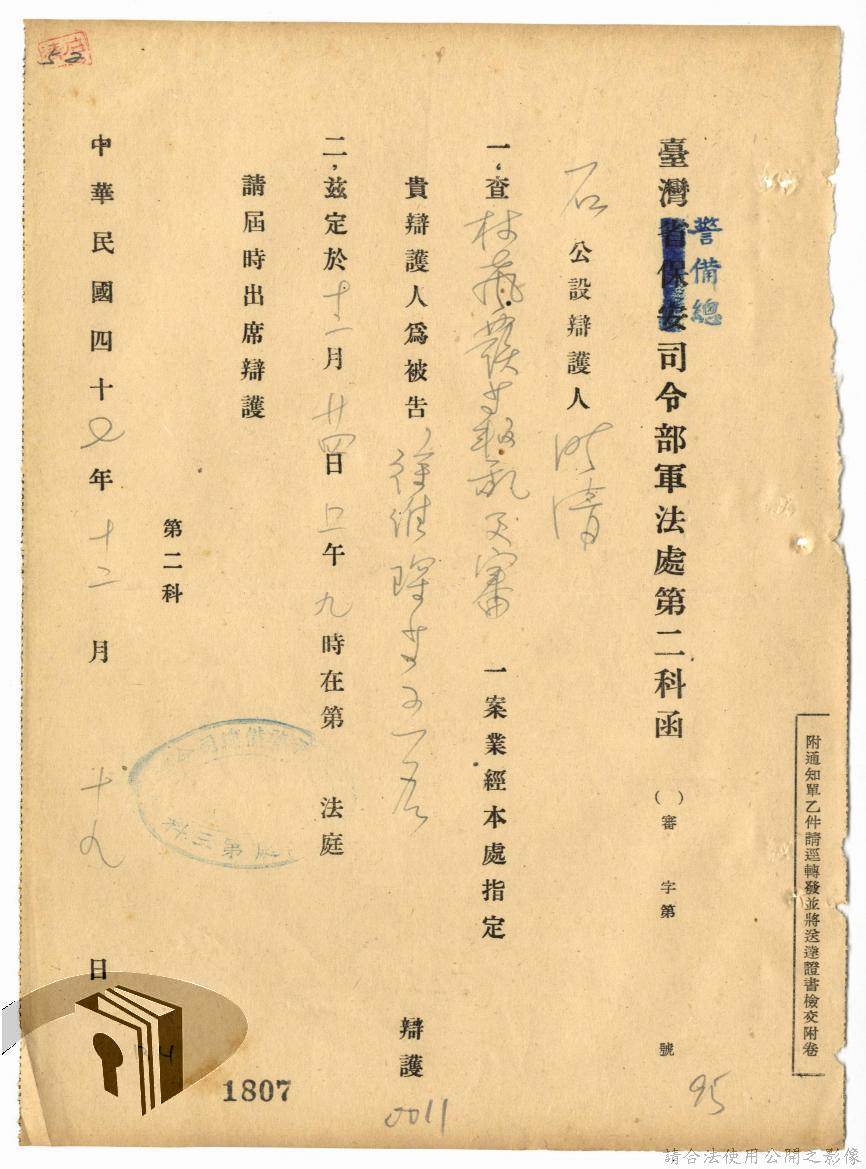 附通知單乙件請逕轉發並將送達證書檢交附卷
警備總
臺灣省保安司令部軍法處第二科函
( )審 字第 號
95
石公設辯護人
一、查林飛霞等叛亂更審一案業經本處指定
貴辯護人為被告徐維琛等 辯護
0011
二、茲定於十二月廿四日上午九時在第 法庭
請屆時出席辯護
第二科
中華民國四十七年十二月十九日
1807
請合法使用公開之影像